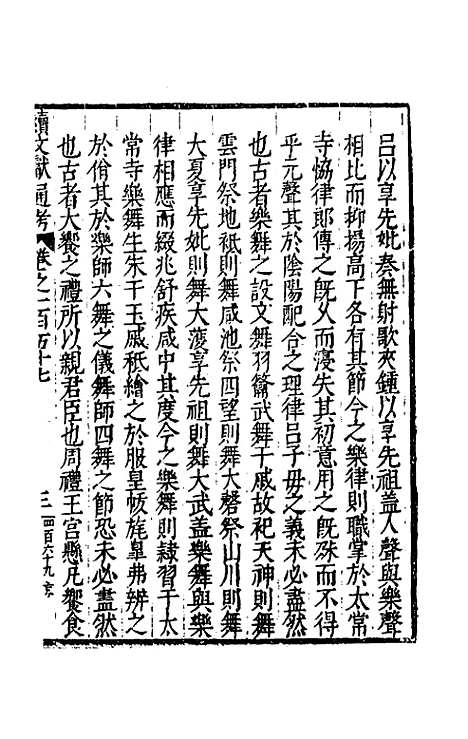 吕以享先妣奏無射歌夾鍾以享先祖盖人聲與樂聲
相比而抑揚高下各有其節今之樂律則職掌於太常
寺恊律郎傳之旣乆而寖失其初意用之旣殊而不得
乎元聲其於陰陽配合之理律吕子母之義未必盡然
也古者樂舞之設文舞羽籥武舞干戚故祀天神則舞
雲門祭地祗則舞咸池祭四望則舞大磬祭山川則舞
大夏享先妣則舞大濩享先祖則舞大武盖樂舞與樂
律相應而綴兆舒疾咸中其度今之樂舞則隷習于太
常寺樂舞生朱干玉戚秪繪之於服皇帗旄皐弗辨之
於佾其於樂師六舞之儀舞師四舞之節恐未必盡然
也古者大饗之禮所以親君臣也周禮王宫縣凡饗食
續文獻通考 卷之一百五十七 三 四百六十九